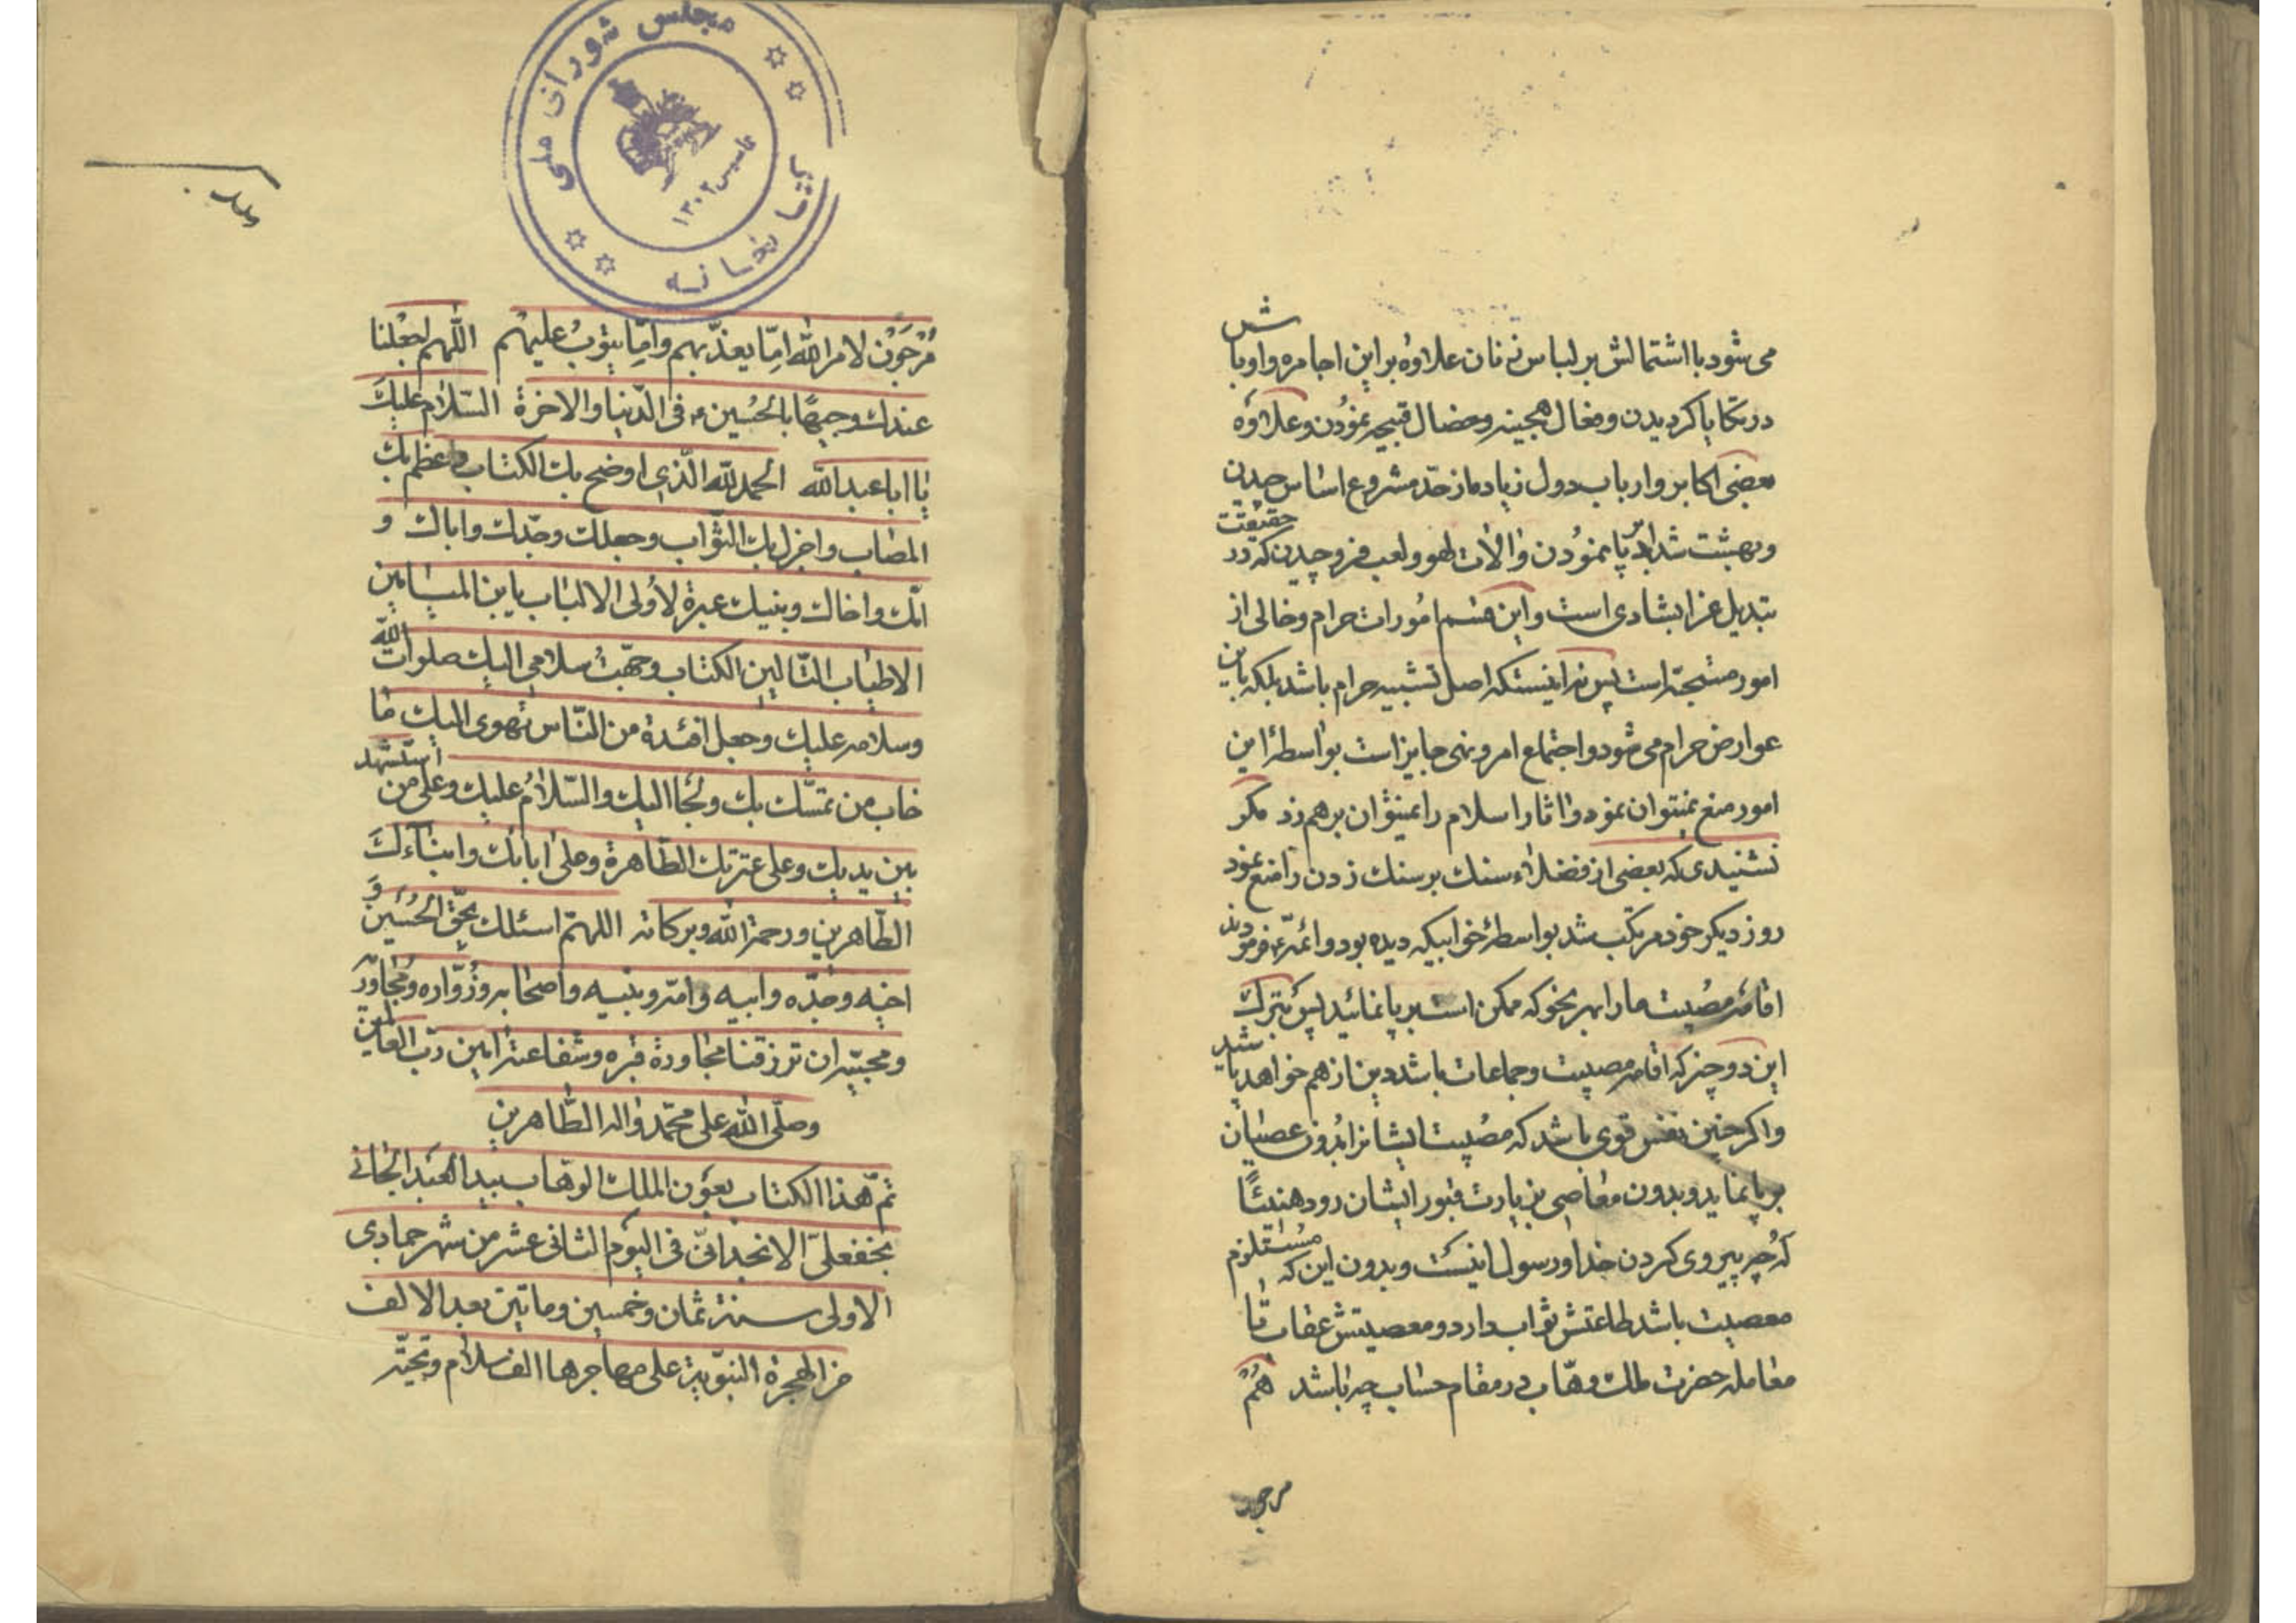 می شود با اشتمالش بر لباس زنان علاوه بر این اجامره و اوباش
در تکایا گردیدن و فعال هجینه و خصال قبیحه نمودن و علاوه
بعضی اکابر و ارباب دول زیاده از حدّ مشروع اساس چیدن
و بهشت شدّاد برپا نمودن و الات لهو و لعب فرو چیدن که در حقیقت
تبدیل عزا بشادی است و این قسم امورات حرام و خالی از
امور مستحبّه است پس نه اینستکه اصل تشبیه حرام باشد بلکه باین
عوارض حرام می شود و اجتماع امر و نهی جایز است بواسطهٔ این
امور منع نمیتوان نمود و اثار اسلام را نمیتوان برهم زد مگر
نشنیدی که بعضی از فضلاء سنك بر سنك زدن را منع نمود
روز دیکر خود مرتکب شد بواسطهٔ خوابیکه دیده بود و ائمّه ع فرمودند
اقامهٔ مصیبت ما را بهر نحو که ممکن است بر پا نمائید پس بترك
این دو چیز که اقامه مصیبت و جماعات باشد دین از هم خواهد پاشید
و اکر چنین نفس قوی باشد که مصیبت ایشانرا بدون عصیان
بر پا نماید و بدون معاصی بزیارت قبور ایشان رود هنیئًا
که چه پیروی کردن خدا و رسول اینست و بدون این که مستلزم
معصیت باشد طاعتش ثواب دارد و معصیتش عقاب تا
معامله حضرت ملك وهّاب در مقام حساب چه باشد هُمْ
مرجون
مُرْجَوْنَ لامر الله امِّا یعذّبهم وامِّا یتوبُ علیهم اللّهم اجْعلنا
عندك وجیهًا بالحُسین ع فی الدّنیا والاخرة السّلام علیكَ
یا ابا عبد الله الحمد لله الّذی اوضح بك الکتاب واعظم بك
المصاب واجزل بك الثّواب وجعلك وجدّك واباك و
امّك واخاك وبنیك عبرة لاُولی الالباب یابن المیامین
الاطیاب التّالین الکتاب وجّهتُ سلامی الیك صلوات الله
وسلامه علیك وجعل افئدة من النّاس تهوی الیك ما
خاب من تمسّك بك ولجٔا الیك والسّلامُ علیك وعلی من استشهد
بین یدیك وعلی عترتك الطّاهرة وعلی ابائك وابناءكَ
الطّاهرین ورحمة الله وبرکاته اللهمّ اسئلك بحقّ الحُسَین وَ
اخیه وجدّه وابیه وامّه وبنیه واصحابه وزُوّاره ومُجاوریه
ومحبّیه ان ترزقنا مجاورة قبره وشفاعته امین ربّ العالمین
وصلّی الله علی محمّد واله الطّاهرین
تمّ هذا الکتاب بعون الملك الوهاب بید العبد الجانی
نجفعلی الانجدانی فی الیوم الثانی عشر من شهر جمادی
الاولی سنة ثمان وخمسین وماتین بعد الالف
من الهجرة النبّویة علی مهاجرها الف سلام وتحیّه
مجلس شورای ملی
کتابخانه
تاسیس ۱۳۰۲